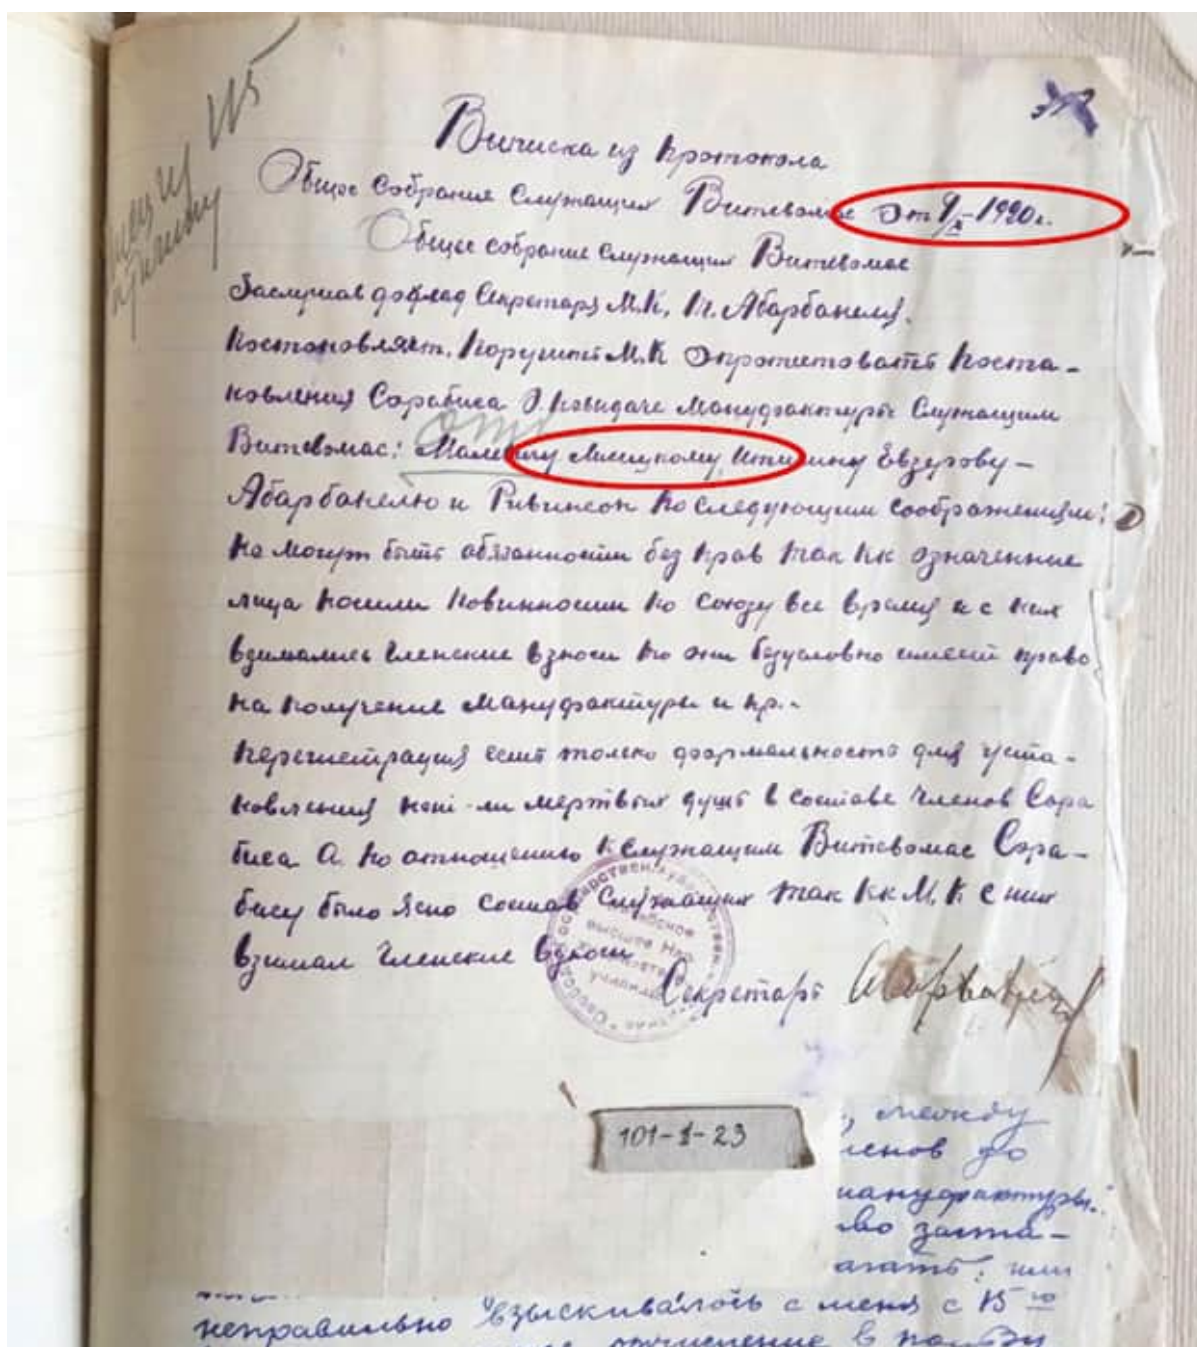 115
Выписка из протокола
Общее Собрания Служащих Витсвомас От 9/X-1920г.
Общее собрание Служащих Витсвомас
Заслушав доклад Секретаря М.К, т. Абарбанеля,
Постановляет, Поручить М.К Опротистовать Поста-
новления Сорабиса О невидаче Мануфактуры Служащим
Витсвомас: Лисицкому, Евзерову-
Абарбанелю и Ривинсон По Следующим Соображениям:
Не могут быть обязанности без прав так кк означенные
лица носили Повинности По Союзу все время и с них
взимались Членские взносы То они безусловно имеют право
на получение мануфактуры и пр.-
Перегистрация есть только формальность для уста-
новления нет-ли мертвых душ в составе Членов Сора
биса А По отношению к Служащим Витсвомас Сора-
бису было ясно состав Служащих так кк М.К с них
взимал Членские взносы
Секретарь
101-1-23
, между
ленов до
мануфактуры.
во заста-
агать; или
неправильно взыскивалось с меня с 15 го
отчисление в пользу